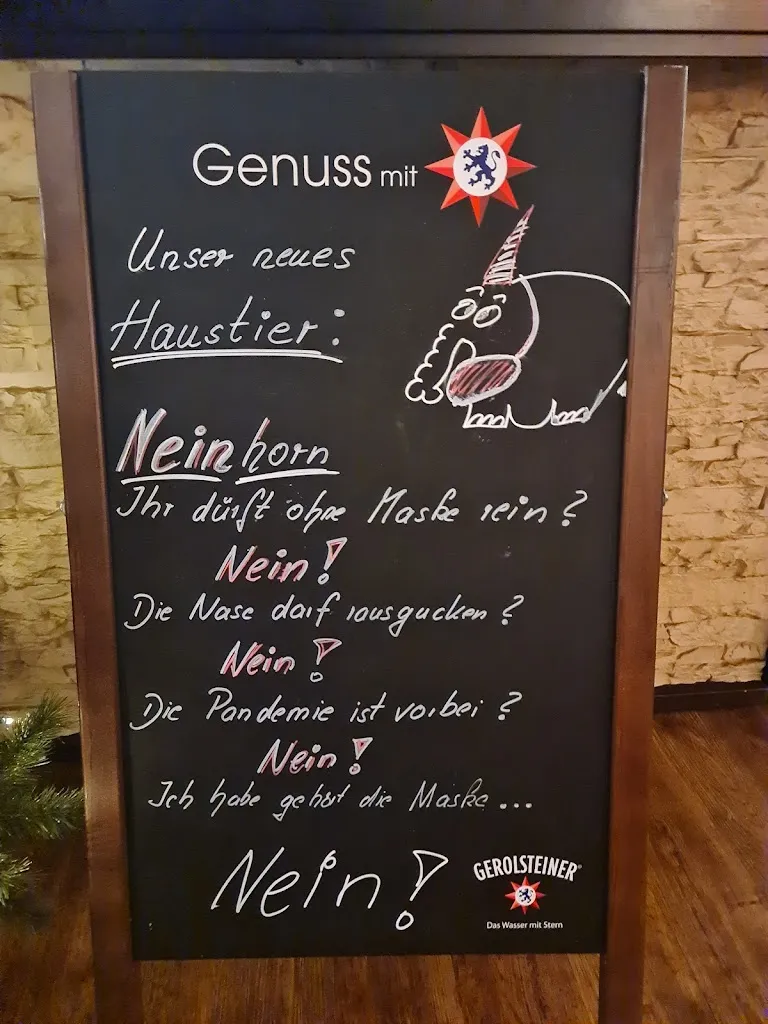 Genuss mit
Unser neues
Haustier:
Neinhorn
Ihr dürft ohne Maske rein?
Nein!
Die Nase darf rausgucken?
Nein!
Die Pandemie ist vorbei?
Nein!
Ich habe gehört die Maske...
Nein!
GEROLSTEINER®
Das Wasser mit Stern